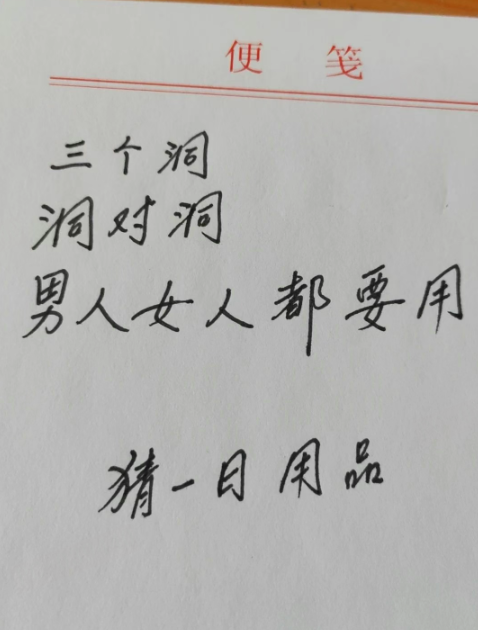 便 笺
三个洞
洞对洞
男人女人都要用
猜一日用品